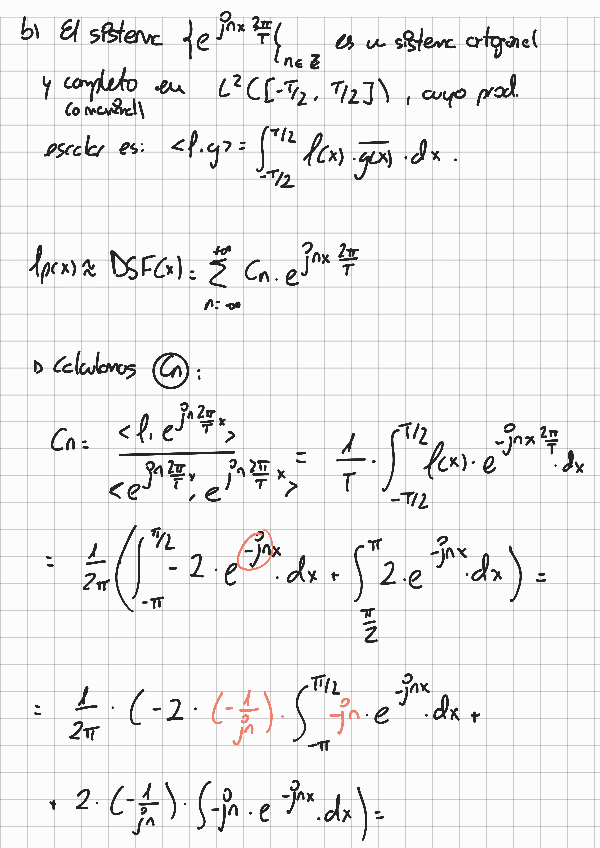 b) El sistema {e^{jnx 2π/T}}_{n∈ℤ} es un sistema ortogonal
y completo en L²([-T/2, T/2]), cuyo prod.
(o maximal)
escalar es: <f.g> = ∫_{-T/2}^{T/2} f(x) · \overline{g(x)} · dx .
fp(x) ≈ DSF(x) = Σ_{n=-∞}^{+∞} Cn · e^{jnx 2π/T}
Calculamos Cn :
Cn = <f, e^{jn 2π/T x}> / <e^{jn 2π/T x}, e^{jn 2π/T x}> = 1/T · ∫_{-T/2}^{T/2} f(x) · e^{-jnx 2π/T} · dx
= 1/2π ( ∫_{-π}^{π/2} -2 · e^{-jnx} · dx + ∫_{π/2}^{π} 2 · e^{-jnx} · dx ) =
= 1/2π · ( -2 · (-1/jn) · ∫_{-π}^{π/2} -jn · e^{-jnx} · dx +
+ 2 · (-1/jn) · ∫ -jn · e^{-jnx} · dx ) =